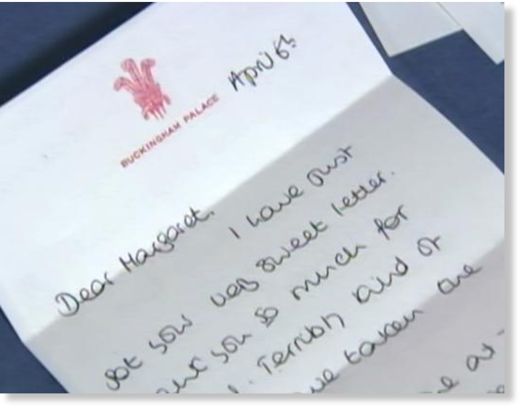 April 6th
BUCKINGHAM PALACE
Dear Margaret.
I have just
got your very sweet letter.
you so much for
Terribly kind of
taken the